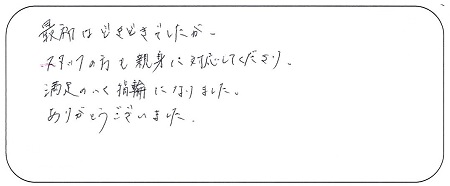 最初はどきどきでしたが、
スタッフの方も親身に対応してくださり、
満足のいく指輪になりました。
ありがとうございました.